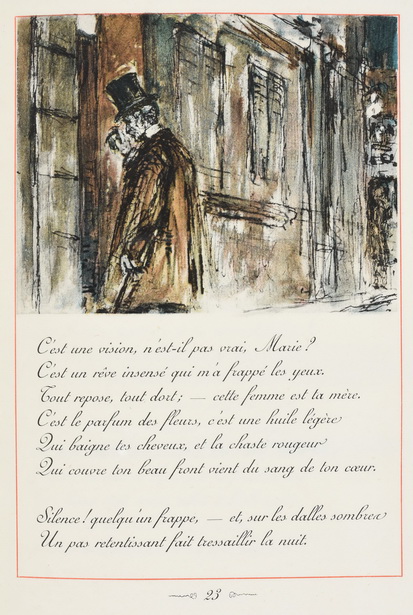 C'est une vision, n'est-il pas vrai, Marie ?
C'est un rêve insensé qui m'a frappé les yeux.
Tout repose, tout dort ; — cette femme est ta mère.
C'est le parfum des fleurs, c'est une huile légère
Qui baigne tes cheveux, et la chaste rougeur
Qui couvre ton beau front vient du sang de ton cœur.

Silence ! quelqu'un frappe, — et, sur les dalles sombres
Un pas retentissant fait tressaillir la nuit.
23